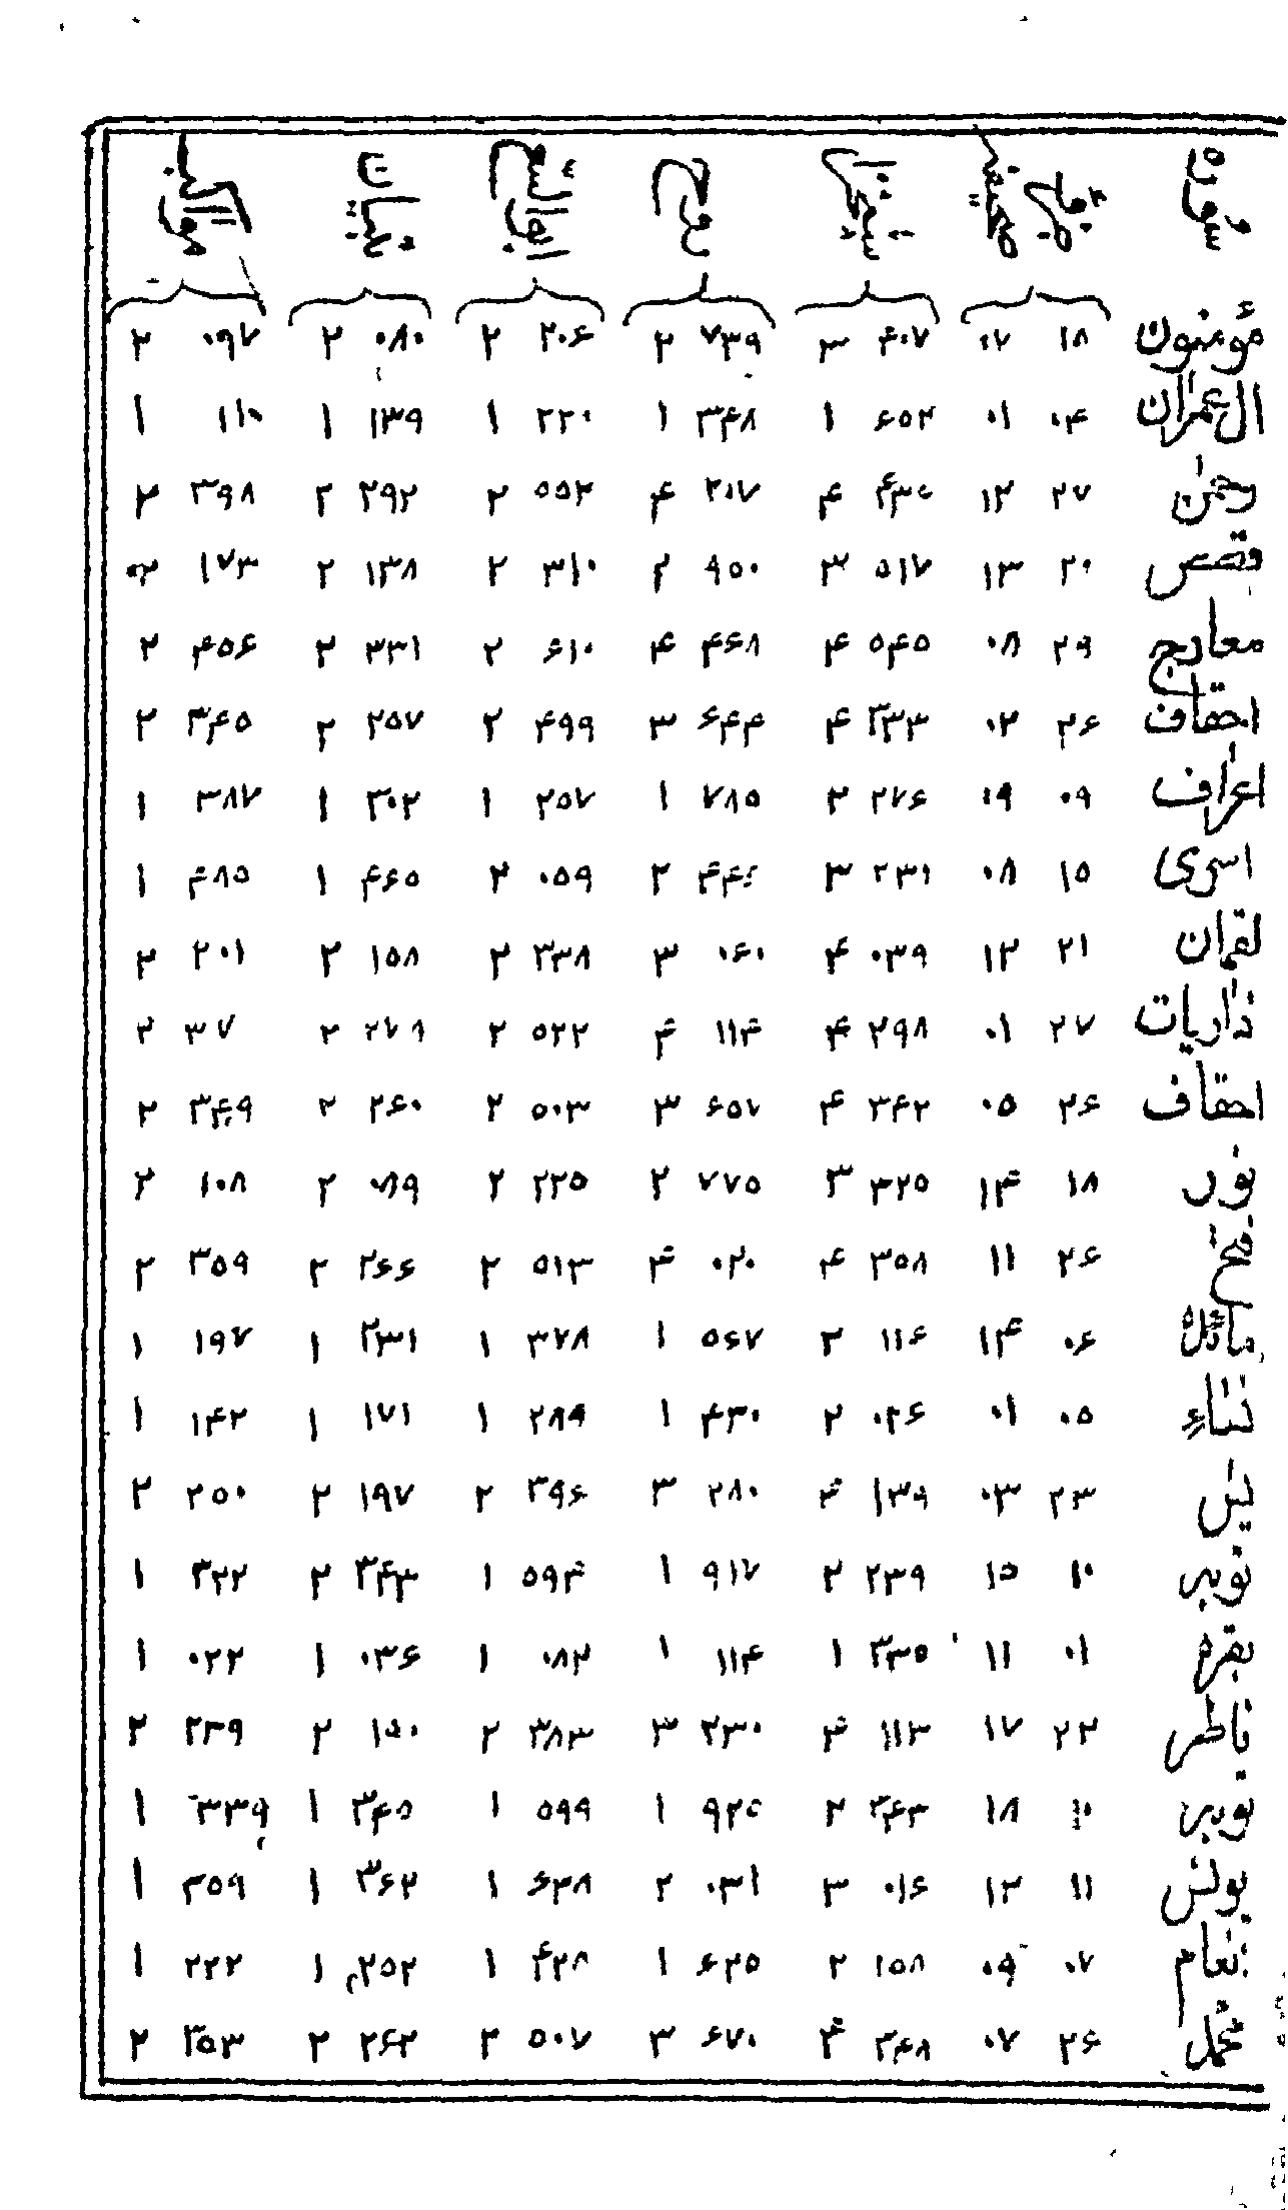 سوره
مؤمنون ۱۸ ۰۷ ۴۰۷ ۳ ۷۳۹ ۲ ۲۰۶ ۲ ۰۸۰ ۲ ۰۹۷ ۲
ال عمران ۰۴ ۰۱ ۶۵۲ ۱ ۳۴۸ ۱ ۲۲۰ ۱ ۱۳۹ ۱ ۱۱۰ ۱
رحمن ۲۷ ۱۲ ۴ ۲۰۷ ۴ ۵۵۲ ۲ ۲۹۲ ۲ ۳۹۸ ۲
قصص ۲۰ ۱۳ ۵۱۷ ۳ ۹۵۰ ۲ ۳۱۰ ۲ ۱۳۸ ۲ ۱۷۳ ۲
معارج ۲۹ ۰۸ ۵۴۵ ۴ ۴۶۸ ۴ ۶۱۰ ۲ ۳۳۱ ۲ ۴۵۶ ۲
احقاف ۲۶ ۰۲ ۳۳۳ ۴ ۶۴۴ ۳ ۴۹۹ ۲ ۲۵۷ ۲ ۳۴۵ ۲
اعراف ۰۹ ۰۹ ۲۷۶ ۲ ۷۸۵ ۱ ۲۵۷ ۱ ۳۰۲ ۱ ۳۸۷ ۱
اسری ۱۵ ۰۸ ۲۳۱ ۳ ۲ ۰۵۹ ۲ ۴۶۵ ۱ ۴۸۵ ۱
لقمان ۲۱ ۱۲ ۰۳۹ ۴ ۰۶۰ ۳ ۳۳۸ ۲ ۱۵۸ ۲ ۲۰۱ ۲
ذاریات ۲۷ ۰۱ ۲۹۸ ۴ ۱۱۴ ۴ ۵۲۲ ۲ ۲۷۹ ۲ ۳۷ ۲
احقاف ۲۶ ۰۵ ۳۴۲ ۴ ۶۵۷ ۳ ۵۰۳ ۲ ۲۶۰ ۲ ۳۴۹ ۲
نور ۱۸ ۱۴ ۳۲۵ ۳ ۷۷۵ ۲ ۲۲۵ ۲ ۰۸۹ ۲ ۱۰۸ ۲
فتح ۲۶ ۱۱ ۳۵۸ ۴ ۰۲۰ ۴ ۵۱۳ ۲ ۲۶۶ ۲ ۳۵۹ ۲
مائده ۰۶ ۱۴ ۱۱۶ ۲ ۵۶۷ ۱ ۳۷۸ ۱ ۲۳۱ ۱ ۱۹۷ ۱
نساء ۰۵ ۰۱ ۰۲۶ ۲ ۴۳۰ ۱ ۲۸۹ ۱ ۱۷۱ ۱ ۱۴۲ ۱
یس ۲۳ ۰۳ ۱۳۹ ۴ ۲۸۰ ۳ ۳۹۶ ۲ ۱۹۷ ۲ ۲۵۰ ۲
توبه ۱۰ ۱۵ ۲۳۹ ۲ ۹۱۷ ۱ ۵۹۴ ۱ ۳۴۳ ۲ ۳۲۲ ۱
بقره ۰۱ ۱۱ ۳۳۵ ۱ ۱۱۴ ۱ ۰۸۲ ۱ ۰۳۶ ۱ ۰۲۲ ۱
فاطر ۲۲ ۱۷ ۱۱۳ ۴ ۲۳۰ ۳ ۳۸۳ ۲ ۱۵۰ ۲ ۲۳۹ ۲
توبه ۱۰ ۱۸ ۲۴۳ ۲ ۹۲۵ ۱ ۵۹۹ ۱ ۳۴۵ ۱ ۳۳۹ ۱
یونس ۱۱ ۱۲ ۰۱۶ ۳ ۰۳۱ ۲ ۶۳۸ ۱ ۳۶۲ ۱ ۳۵۹ ۱
انعام ۰۷ ۰۹ ۱۵۸ ۲ ۶۲۵ ۱ ۴۲۸ ۱ ۲۵۲ ۱ ۲۲۲ ۱
محمد ۲۶ ۰۷ ۳۴۸ ۴ ۶۷۰ ۳ ۵۰۷ ۲ ۲۶۲ ۲ ۳۵۳ ۲